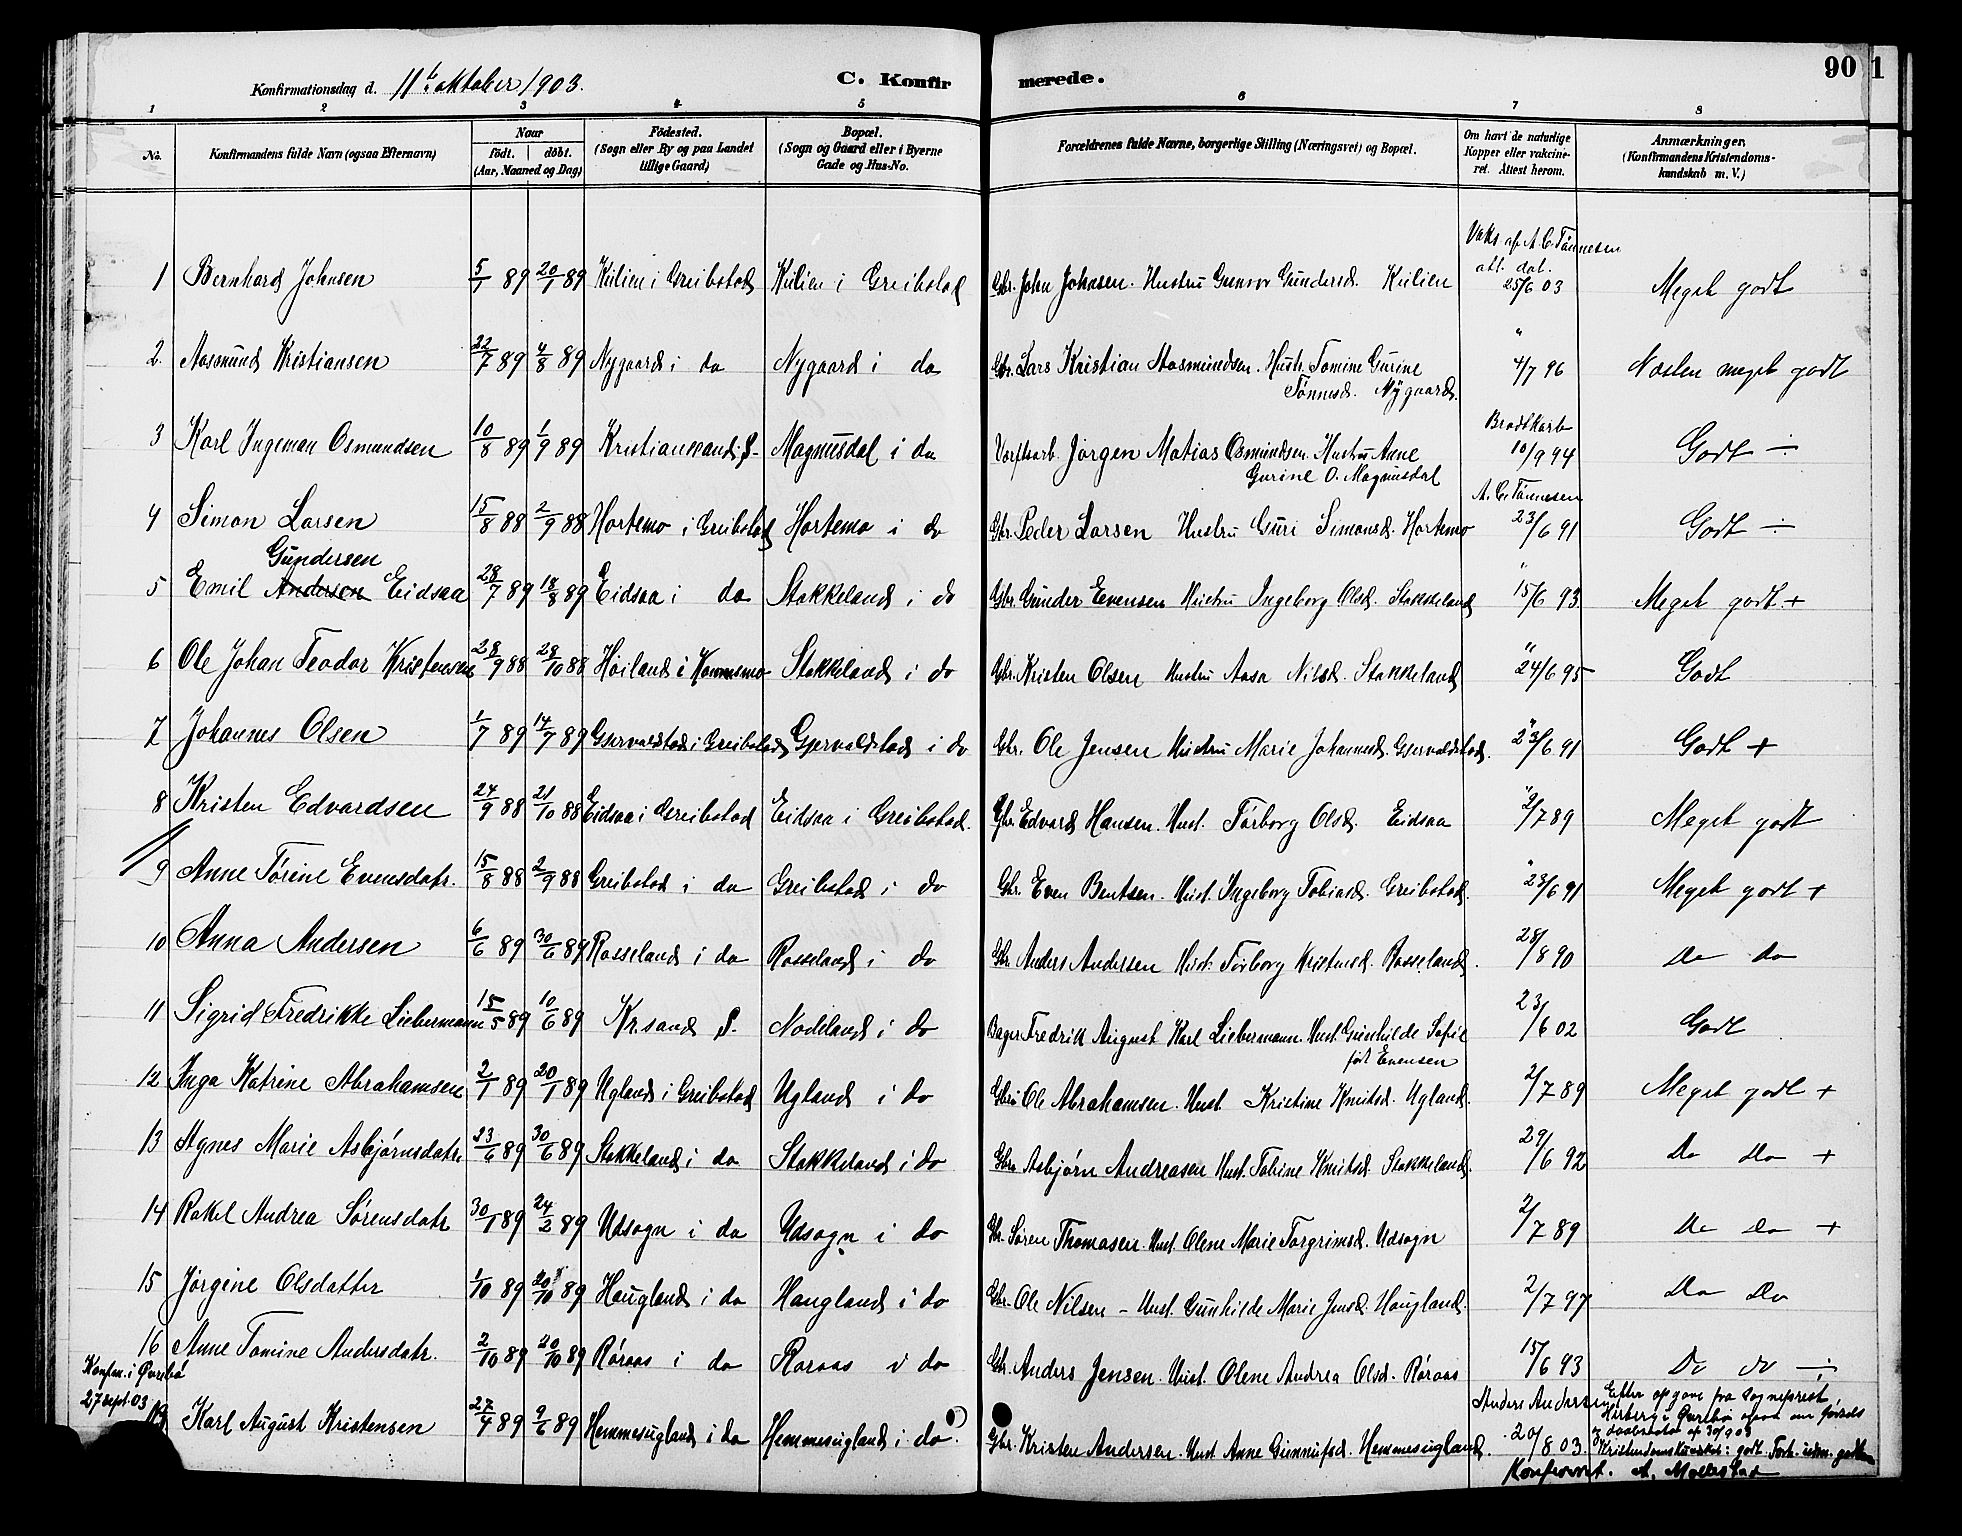 Konfirmationsdag d. 11te oktober 1903. C. Konfirmerede. 90 1
1 2 3 4 5 6 7 8
No. Konfirmandens fulde Navn (ogsaa Efternavn) Naar födt. döbt. (Aar, Maaned og Dag) Födested. (Sogn eller By og paa Landet tillige Gaard) Bopæl. (Sogn og Gaard eller i Byerne Gade og Hus-No. Forældrenes fulde Navne, borgerlige Stilling (Næringsvei) og Bopæl. Om havt de naturlige Kopper eller vakcineret. Attest herom. Anmærkninger. (Konfirmandens Kristendomskundskab m. V.)
Vaks af A. C. Tønnesen
att. dat.
1 Bernhard Johnsen 5/1 89 20/1 89 Kulien i Greibstad Kulien i Greibstad Gbr. John Johnsen. Hustru Gunvor Gundersd. Kulien 25/6 03 Meget godt
2. Aasmund Kristiansen 22/7 89 4/8 89 Nygaard i do Nygaard i do Gbr. Lars Kristian Aasmundsen. Hustr. Tomine Gurine " 4/7 96 Næsten meget godt
Tønnesd. Nygaard.
3 Karl Ingeman Osmundsen 10/8 89 1/9 89 Kristianssand S. Magnusdal i do Værftsarb. Jørgen Matias Osmundsen. Hustru Anne Gurine O. Magnusdal 10/9 94 Godt ÷
4 Simon Larsen 15/8 88 2/9 88 Hortemo i Greibstad Hortemo i do Gbr. Peder Larsen Hustru Guri Simonsd. Hortemo A. C. Tønnesen 23/6 91 Godt ÷
Gundersen
5 Emil Andersen Eidsaa 28/7 89 18/8 89 Eidsaa i do Stokkeland i do Gbr. Gunder Evensen Hustru Ingeborg Olsd. Stokkeland " 15/6 93 Meget godt +
6 Ole Johan Teodor Kristensen 28/9 88 28/10 88 Høiland i Stokkeland i do Gbr. Kristen Olsen Hustru Aasa Nilsd. Stokkeland " 24/6 95 Godt
7 Johannes Olsen 1/7 89 14/7 89 Gjervoldstad i Greibstad Gjervoldstad i do Gbr. Ole Jensen Hustru Marie Johannesd. Gjervoldstad. " 23/6 91 Godt +
8 Kristen Edvardsen 24/9 88 21/10 88 Eidsaa i Greibstad Eidsaa i Greibstad. Gbr. Edvard Hansen. Hust. Tørborg Olsd. Eidsaa " 2/7 89 Meget godt
9 Anne Tørine Evensdatr. 15/8 88 2/9 88 Greibstad i do Greibstad i do Gbr. Even Bentsen. Hust. Ingeborg Tobiasd. Greibstad. " 23/6 91 Meget godt +
10 Anna Andersen 6/6 89 30/6 89 Rosseland i do Rosseland i do Gbr. Anders Andersen Hust. Torborg Kristensd. Rosseland. 28/8 90 Do do
11 Sigrid Fredrikke Liebermann 15/5 89 10/6 89 Kr.sand S. Nodeland i do Bager Fredrik August Karl Liebermann. Hust. Gunhilde Sofie 23/6 02 Godt
født Evensen
12 Inga Katrine Abrahamsen 2/1 89 20/1 89 Ugland i Greibstad Ugland i do Gbr. Ole Abrahamsen. Hust. Kristine Knutsd. Ugland. 2/7 89 Meget godt +
13 Agnes Marie Asbjørnsdatr. 23/6 89 30/6 89 Stokkeland i do Stokkeland i do Gbr. Asbjørn Andreasen Hust. Tobine Knutsd. Stokkeland. 29/6 92 Do do +
14 Rakel Andrea Sørensdatr 30/1 89 24/2 89 Udsogn i do Udsogn i do Gbr. Søren Thomasen. Hust. Olene Marie Torgrimsd. Udsogn 2/7 89 Do do +
15 Jørgine Olsdatter 1/10 89 20/10 89 Haugland i do Haugland i do Gbr. Ole Nilsen - Hust. Gunhilde Marie Jensd. Haugland. 2/7 97 Do Do
16 Anne Tomine Andersdatr. 2/10 89 20/10 89 Røraas i do Roraas i do Gbr. Anders Jensen. Hust. Olene Andrea Olsd. Røraas 15/6 93 Do do ÷
Konfirm. i Øvrebø
27 sept. 03
Karl August Kristensen 27/4 89 9/6 89 Hemmesugland i do Hemmesugland i do. Gbr. Kristen Andersen. Hust. Anne Gunnufsd. Hemmesugland. Anders Andersen 20/8 03. Efter opgave fra Sogneprest
i Øvrebø
af 30/9 03
godt.
Konfirmeret.